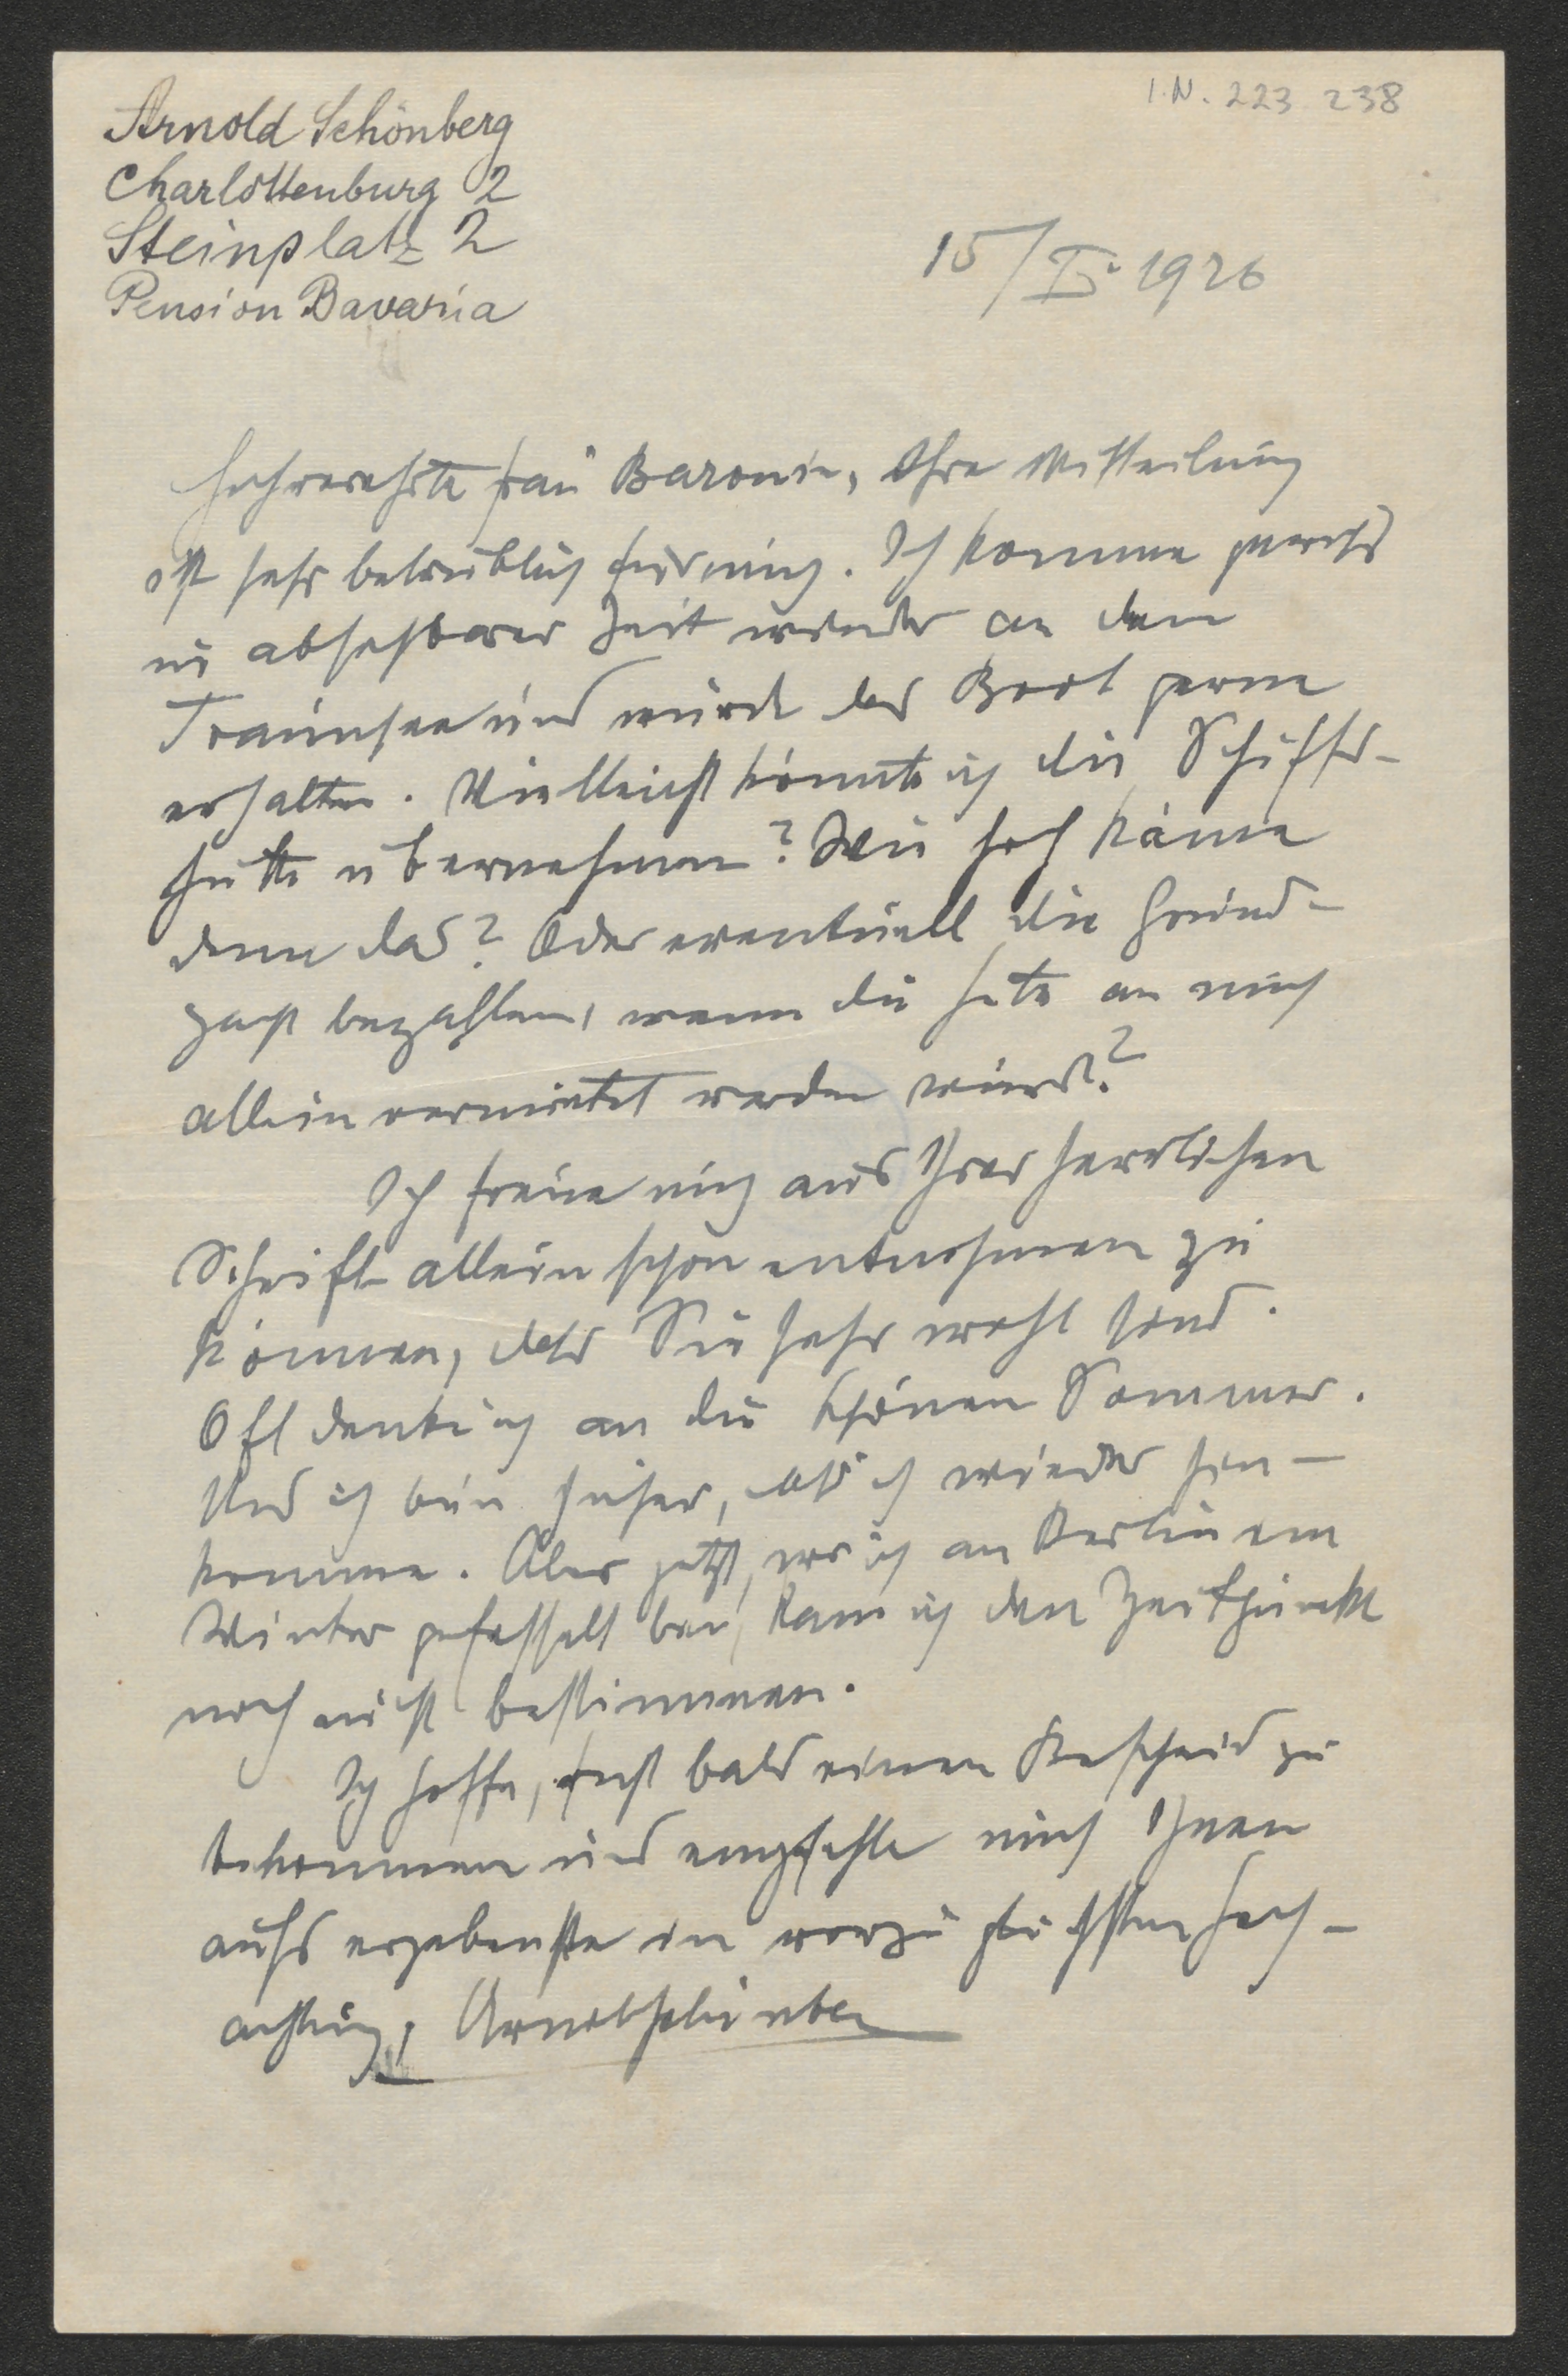 I.N. 223 238
Arnold Schönberg
Charlottenburg 2
Steinplatz 2
Pension Bavaria
15/ 1926
Hochverehrte Frau Baronin, Ihre Mitteilung
ist sehr betrüblich für mich. Ich komme gewiß
in absehbarer Zeit wieder an den
Traunsee und würde das Boot gerne
erhalten. Vielleicht könnte ich die Schiffs-
hütte übernehmen? Wie hoch käme
denn das? Oder eventuell die Grund-
pacht bezahlen, wenn die Hütte an mich
allein vermietet werden würde?
Ich freue mich aus Ihrer herrlichen
Schrift allein schon entnehmen zu
können, daß Sie sehr wohl sind.
Oft denke ich an die schönen Sommer.
Und ich bin sicher, daß ich wieder hin-
komme. Aber jetzt, wo ich an Berlin im
Winter gefesselt bin, kann ich den Zeitpunkt
noch nicht bestimmen.
Ich hoffe, recht bald einen Bescheid zu
bekommen und empfehle mich Ihnen
aufs ergebenste in vorzüglichster Hoch-
achtung, Arnold Schönberg